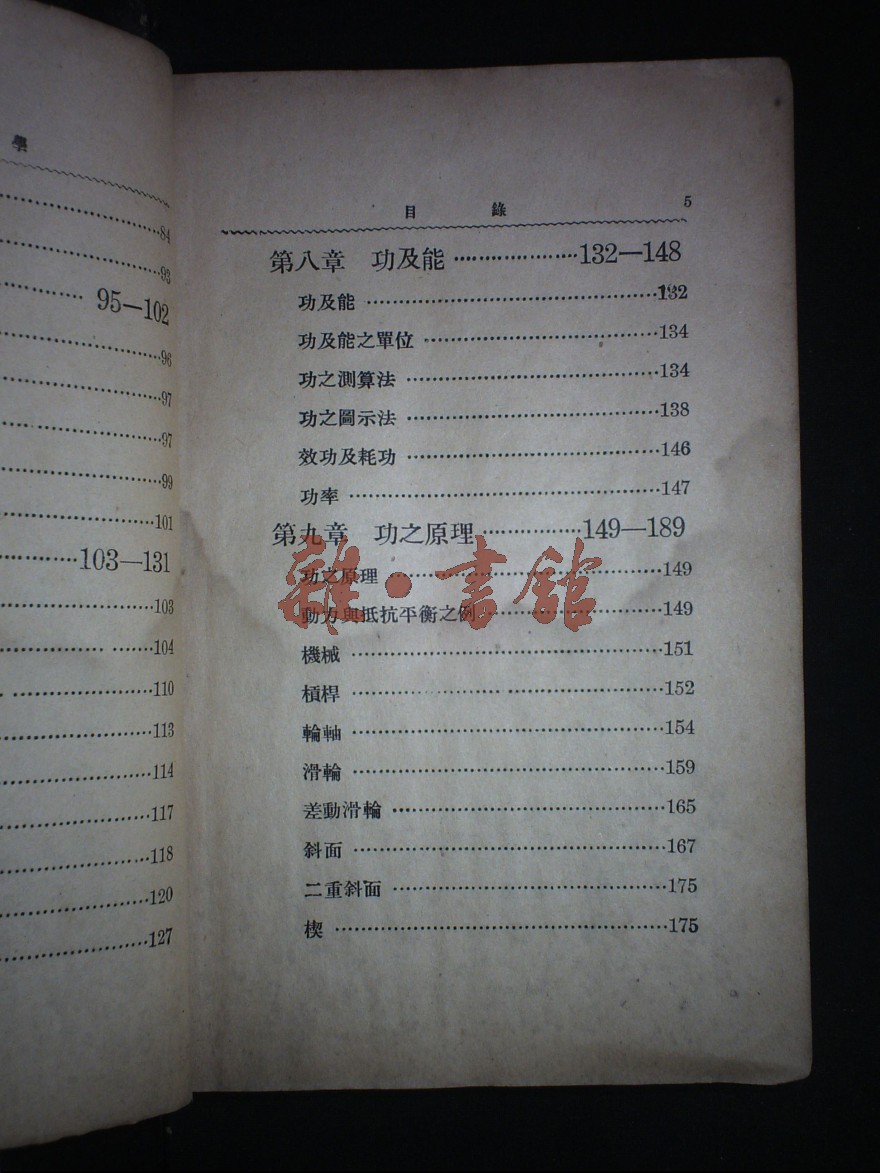 學
84
93
95—102
96
97
97
99
101
103—131
103
104
110
113
114
117
118
120
127
目錄 5
第八章 功及能 132—148
功及能 132
功及能之單位 134
功之測算法 134
功之圖示法 138
效功及耗功 146
功率 147
第九章 功之原理 149—189
功之原理 149
動力與抵抗平衡之例 149
機械 151
槓桿 152
輪軸 154
滑輪 159
差動滑輪 165
斜面 167
二重斜面 175
楔 175
雜·書館